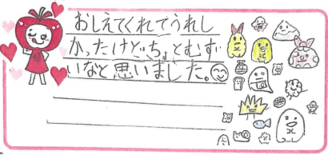 おしえてくれてうれし
かったけどちょとむず
いなと思いました。